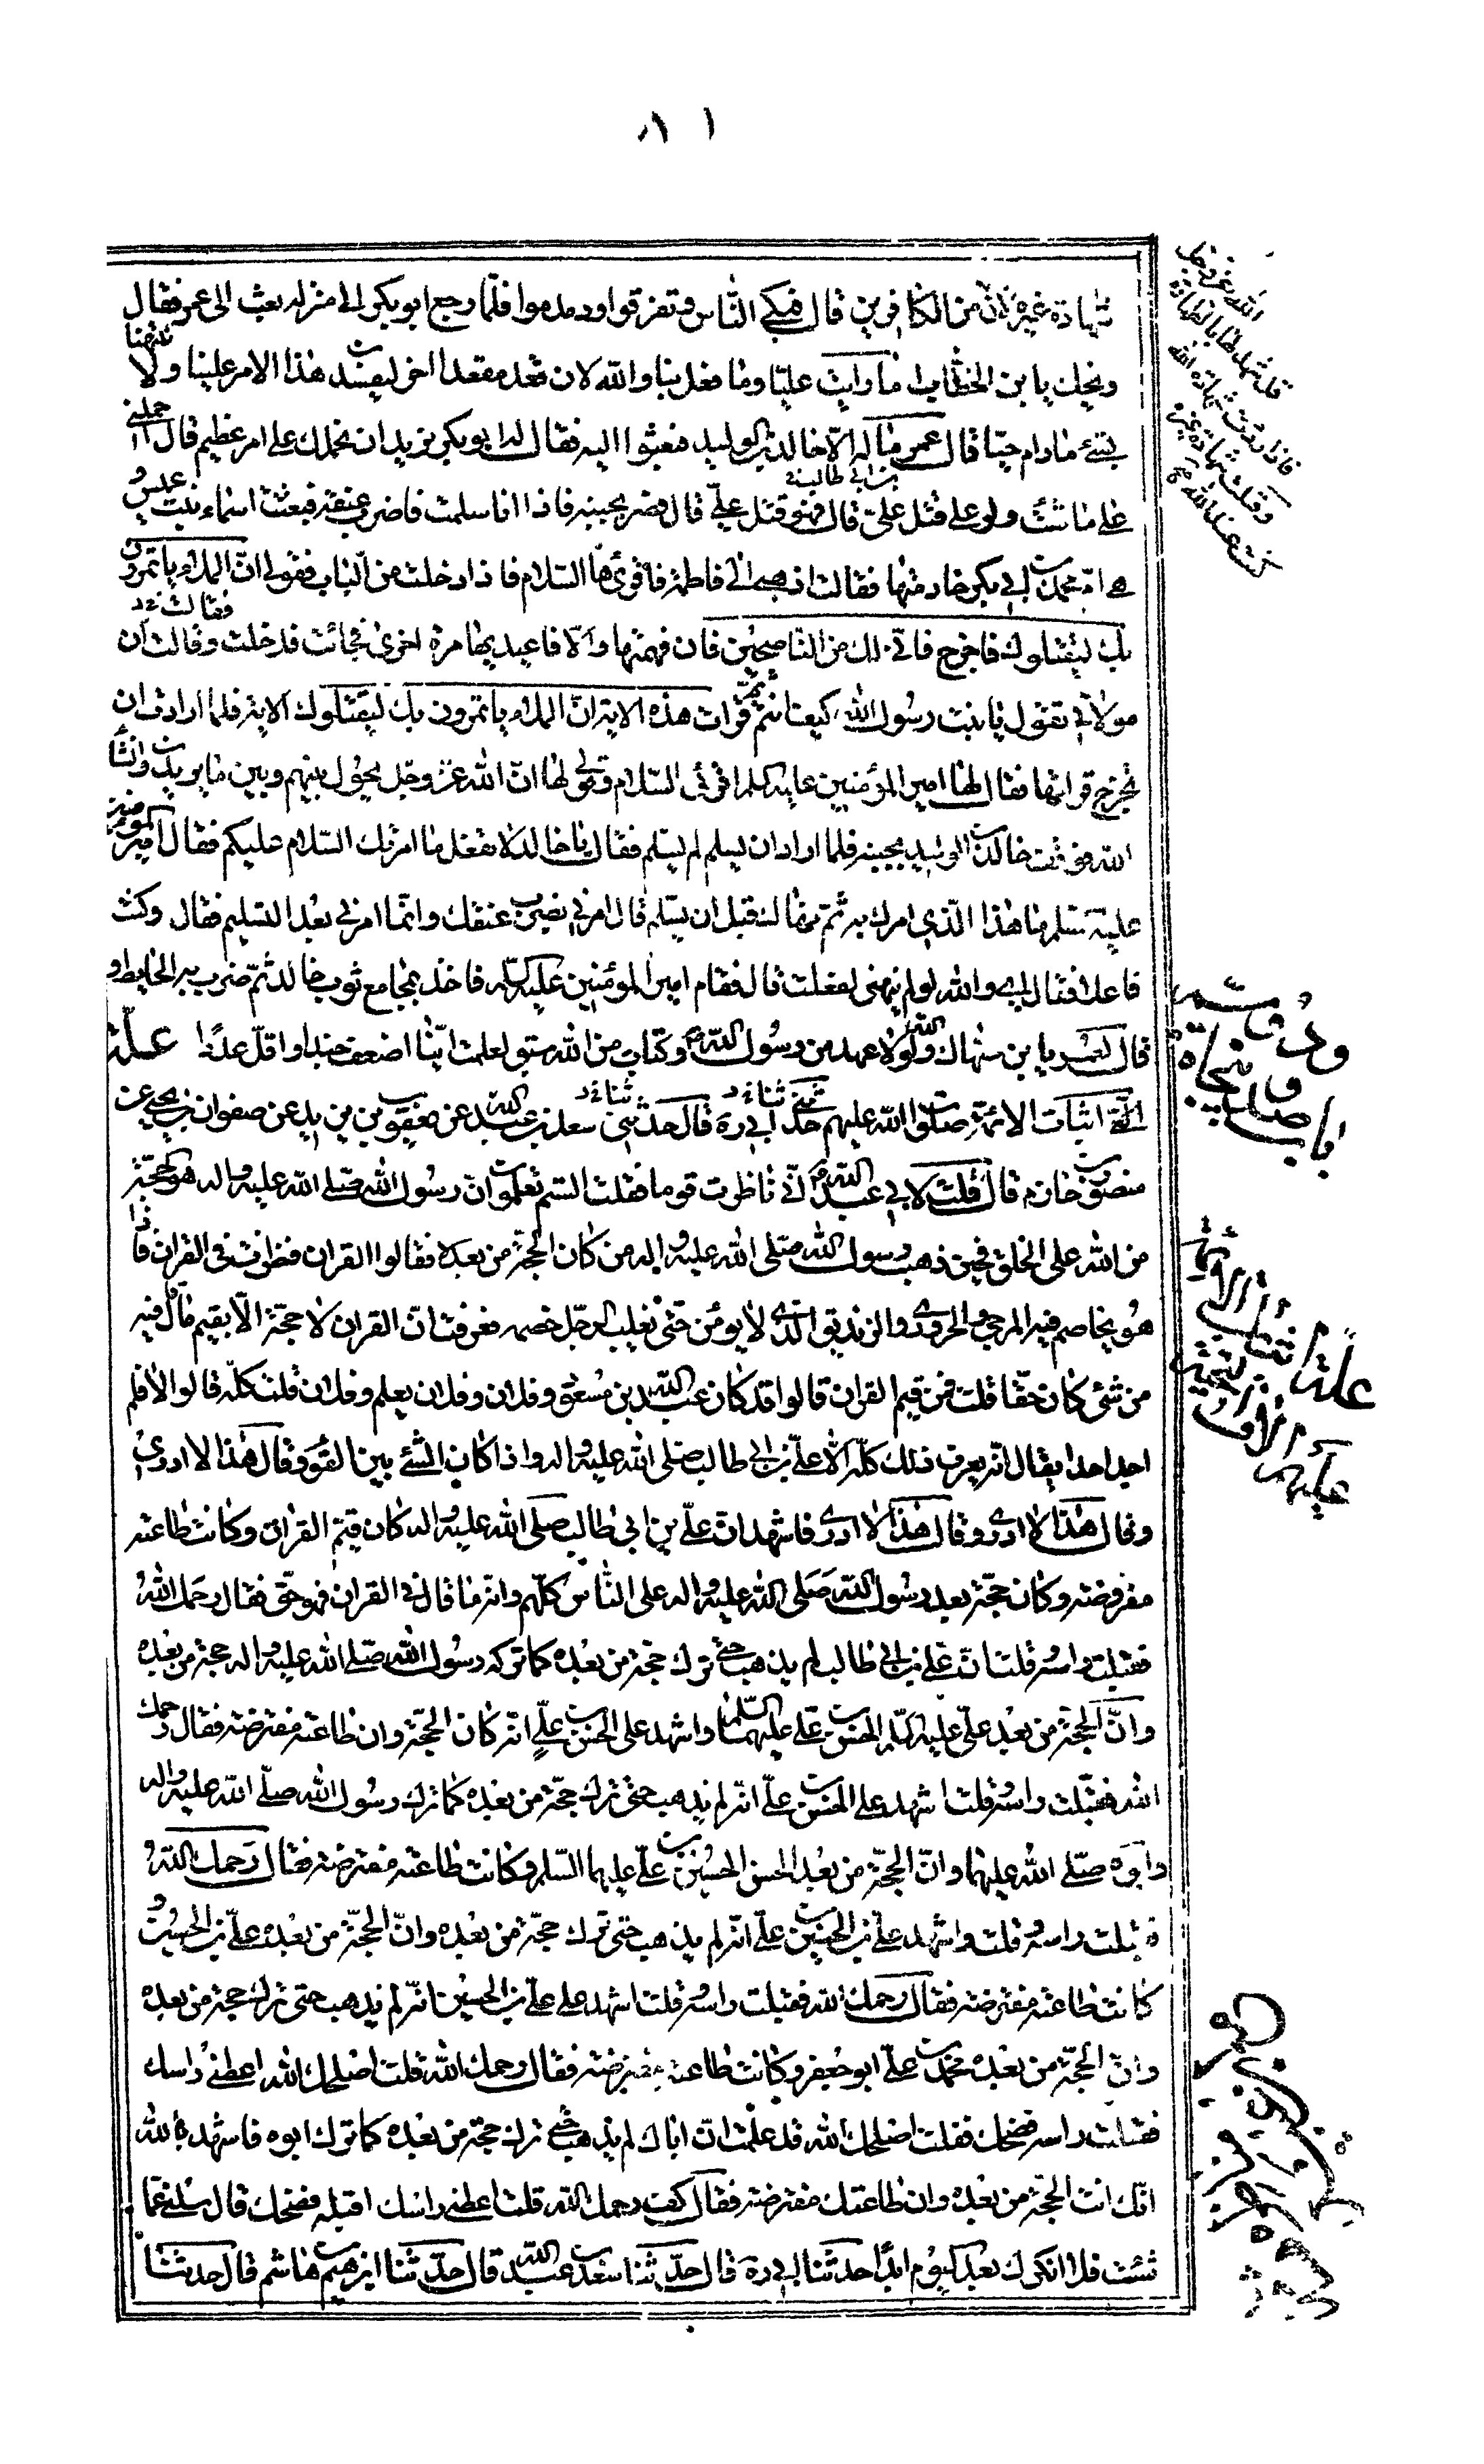 ٨١
شهادة غيره لأن من الكافرين قال فبكى الناس وتفرقوا ودمدموا فلما رجع ابوبكر الى منزله بعث الى عمر فقال
ويحك يا بن الخطاب اما رايت عليا وما فعل بنا والله لان قعد مقعدا اخر ليفسدن هذا الامر علينا ولا نتهنا
بشئ مادام حيا قال عمر ماله الا خالد بن الوليد فبعثوا اليه فقال له ابوبكر نريد ان نحملك على امر عظيم قال احملني
على ما شئت ولو على قتل علي بن ابي طالب قال فهو قتل علي قال فصر بجنبه فاذا انا سلمت فاضرب عنقه فبعثت اسماء بنت عميس
هي ام محمد بن ابي بكر خادمتها فقالت اذهبي الى فاطمة فاقرئيها السلام فاذا دخلت من الباب فقولي ان الملاء ياتمرون
بك ليقتلوك فاخرج فاني لك من الناصحين فان فهمتها والا فاعيديها مرة اخرى فجائت فدخلت وقالت ان
مولاتي تقول يا بنت رسول الله كيف انتم ثم قرات هذه الاية ان الملاء ياتمرون بك ليقتلوك الاية فلما ارادت ان
تخرج قراتها فقال لها امير المؤمنين عليه السلام اقرئي السلام وقولي لها ان الله عز وجل يحول بينهم وبين ما يريدون انشاء
الله فوقف خالد بن الوليد بجنبه فلما اراد ان يسلم لم يسلم فقال يا خالد لا تفعل ما امرتك السلام عليكم فقال امير المؤمنين
عليه السلام ما هذا الذي امرك به ثم نهاك قبل ان يسلم قال امرني بضرب عنقك وانما امرني بعد التسليم فقال وكنت
فاعلا فقال اي والله لو لم ينهني لفعلت قال فقام امير المؤمنين عليه السلام فاخذ بمجامع ثوب خالد ثم ضرب به الحايط و
قال لعمر يا بن صهاك والله لولا عهد من رسول الله وكتاب من الله سبق لعلمت اينا اضعف جندا واقل عددا علة
اثبات الائمة صلوات الله عليهم حدثنا ابي ره قال حدثنى سعد بن عبد الله عن يعقوب بن يزيد عن صفوان بن يحيى عن
منصور بن حازم قال قلت لابي عبد الله اني ناظرت قوما فقلت الستم تعلمون ان رسول الله صلى الله عليه واله هو الحجة
من الله على الخلق فحين ذهب رسول الله صلى الله عليه واله من كان الحجة من بعده فقالوا القران فنظرت في القران فاذا
هو يخاصم فيه المرجى والحرورى والزنديق الذى لا يؤمن حتى يغلب الرجل خصمه فعرفت ان القران لا حجة الا بقيم ما قال فيه
من شئ كان حقا قلت فمن قيم القران قالوا قد كان عبد الله بن مسعود وفلان وفلان يعلم وفلان قلت كله قالوا لا فلم
اجد احدا يقال انه يعرف ذلك كله الا علي بن ابي طالب صلى الله عليه واله واذا كان الشئ بين القوم وقال هذا لا ادرى
وقال هذا لا ادرى وقال هذا لا ادرى فاشهد ان علي بن ابي طالب صلى الله عليه واله كان قيم القران وكانت طاعته
مفروضه وكان حجة بعد رسول الله صلى الله عليه واله على الناس كلهم وانه ما قال في القران فهو حق فقال رحمك الله
فقبلت راسه وقلت ان علي بن ابي طالب لم يذهب حتى ترك حجة من بعده كما ترك رسول الله صلى الله عليه واله حجة من بعده
وان الحجة من بعد علي عليه السلام الحسن بن علي عليهما السلام واشهد على الحسن بن علي انه كان الحجة وان طاعته مفترضة فقال رحمك
الله فقبلت راسه وقلت اشهد على الحسن بن علي انه لم يذهب حتى ترك حجة من بعده كما ترك رسول الله صلى الله عليه واله
وابوه صلى الله عليهما وان الحجة من بعد الحسن الحسين بن علي عليهما السلام وكانت طاعته مفترضة فقال رحمك الله و
قبلت راسه وقلت واشهد على الحسين بن علي انه لم يذهب حتى ترك حجة من بعده وان الحجة من بعده علي بن الحسين و
كانت طاعته مفترضة فقال رحمك الله فقبلت راسه وقلت اشهد على علي بن الحسين انه لم يذهب حتى ترك حجة من بعده
وان الحجة من بعده محمد بن علي ابو جعفر وكانت طاعته مفترضة فقال رحمك الله قلت اصلحك الله اعطني راسك
فقبلت راسه فضحك فقلت اصلحك الله قد علمت ان اباك لم يذهب حتى ترك حجة من بعده كما ترك ابوه فاشهد بالله
انك انت الحجة من بعده وان طاعتك مفترضة فقال كف رحمك الله قلت اعطني راسك اقبله فضحك قال سلني عما
شئت فلا انكرك بعد اليوم ابدا حدثنا ابي ره قال حدثنا سعد بن عبد الله قال حدثنا ابرهيم بن هاشم قال حدثنا
الله عز وجل
قد شهد لها بالطهارة
فاذا رددت شهادة الله
وقبلت شهادة غيره
كنت عند الله
علة اثبات الائمة
عليهم